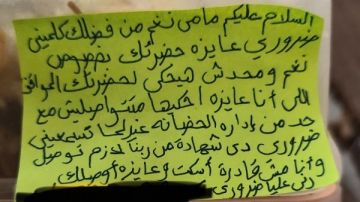 السلام عليكم مامى نغم من فضلك كلمينى
ضرورى عايزه حضرتك بخصوص
نغم ومحدش هيحكى لحضرتك الموافق
اللى أنا عايزه احكيها متتواصليش مع
حد من إدارة الحضانه غير لما تسمعينى
ضرورى دى شهادة من ربنا لازم توصل
وأنا مش قادرة أسكت وعايزه أوصلك
دى عليا ضرورى